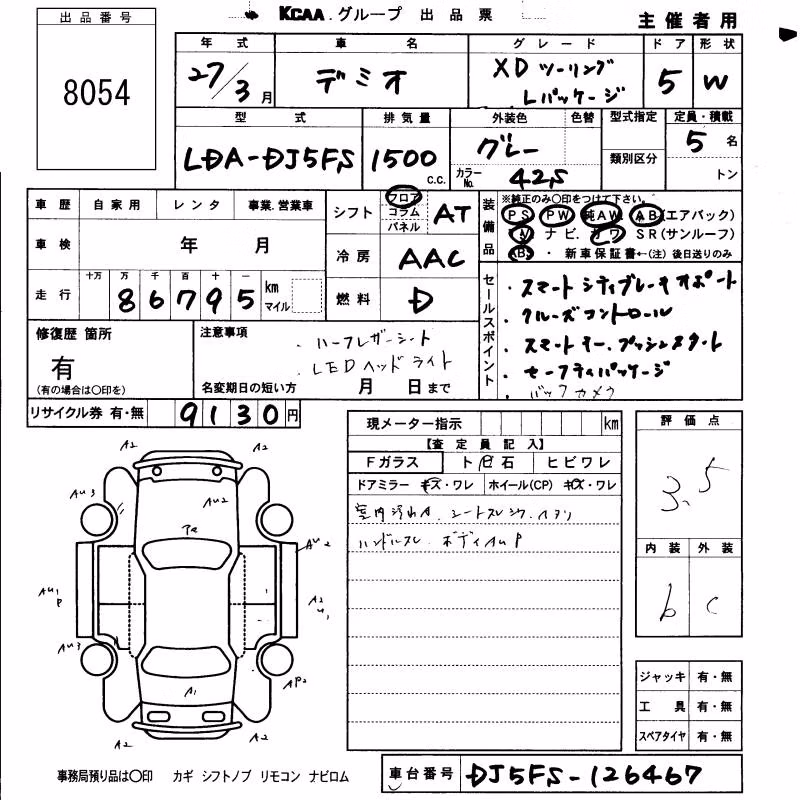 KCAA.グループ 出品票
主催者用
出品番号
8054
年式 車名 グレード ドア 形状
27/3月 デミオ XDツーリング Lパッケージ 5 W
型式 排気量 外装色 色替 型式指定 定員・積載
LDA-DJ5FS 1500 c.c. グレー 5名
カラーNo. 42S 類別区分 トン
車歴 自家用 レンタ 事業.営業車
車検 年 月
走行 十万 万 千 百 十 一
86795 km マイル
シフト フロア コラム パネル AT
冷房 AAC
燃料 D
装備品 ※純正のみ〇印をつけて下さい。
PS PW 純AW AB(エアバック)
TV ナビ. カワ SR(サンルーフ)
ABS ・ 新車保証書←(注) 後日送りのみ
セールスポイント
・スマートシティブレーキサポート
・クルーズコントロール
・スマートキー.プッシュスタート
・セーフティパッケージ
・バックカメラ
修復歴 箇所
有
(有の場合は〇印を)
注意事項
・ハーフレザーシート
・LEDヘッドライト
名変期日の短い方 月 日まで
リサイクル券 有・無 9130円
現メーター指示 km
【査定員記入】
Fガラス ト 石 ヒビワレ
ドアミラー キズ・ワレ ホイール(CP) キズ・ワレ
ハンドルスレ ボディAUP
評価点
3.5
内装 外装
b c
A2 A2
AU3 A2
AU2
AU2
AU1 P
A2
U1
AU3
AP2
A1
A2 A2
ジャッキ 有・無
工具 有・無
スペアタイヤ 有・無
事務局預り品は〇印 カギ シフトノブ リモコン ナビロム
車台番号 DJ5FS-126467